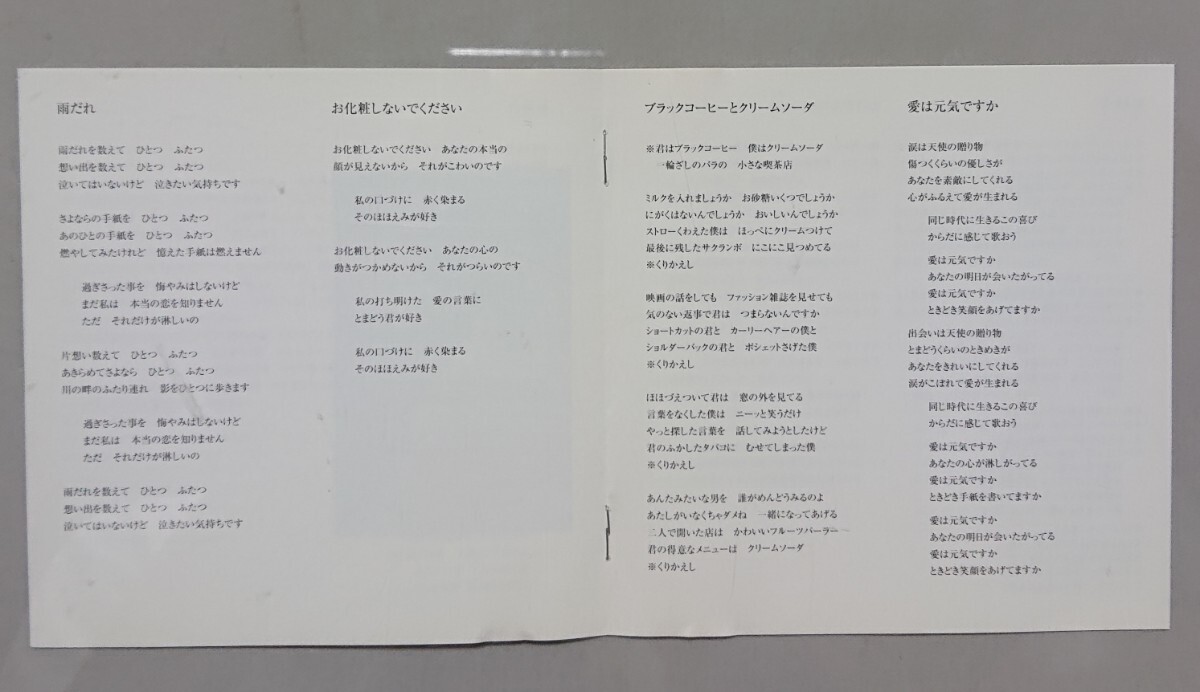 雨だれ
雨だれを数えて　ひとつ　ふたつ
想い出を数えて　ひとつ　ふたつ
泣いてはいないけど　泣きたい気持ちです
さよならの手紙を　ひとつ　ふたつ
あのひとの手紙を　ひとつ　ふたつ
燃やしてみたけれど　憶えた手紙は燃えません
過ぎさった事を　悔やみはしないけど
まだ私は　本当の恋を知りません
ただ　それだけが淋しいの
片想い数えて　ひとつ　ふたつ
あきらめてさよなら　ひとつ　ふたつ
川の畔のふたり連れ　影をひとつに歩きます
過ぎさった事を　悔やみはしないけど
まだ私は　本当の恋を知りません
ただ　それだけが淋しいの
雨だれを数えて　ひとつ　ふたつ
想い出を数えて　ひとつ　ふたつ
泣いてはいないけど　泣きたい気持ちです
お化粧しないでください
お化粧しないでください　あなたの本当の
顔が見えないから　それがこわいのです
私の口づけに　赤く染まる
そのほほえみが好き
お化粧しないでください　あなたの心の
動きがつかめないから　それがつらいのです
私の打ち明けた　愛の言葉に
とまどう君が好き
私の口づけに　赤く染まる
そのほほえみが好き
ブラックコーヒーとクリームソーダ
※君はブラックコーヒー　僕はクリームソーダ
一輪ざしのバラの　小さな喫茶店
ミルクを入れましょうか　お砂糖いくつでしょうか
にがくはないんでしょうか　おいしいんでしょうか
ストローくわえた僕は　ほっぺにクリームつけて
最後に残したサクランボ　にこにこ見つめてる
※くりかえし
映画の話をしても　ファッション雑誌を見せても
気のない返事で君は　つまらないんですか
ショートカットの君と　カーリーヘアーの僕と
ショルダーバックの君と　ポシェットさげた僕
※くりかえし
ほほづえついて君は　窓の外を見てる
言葉をなくした僕は　ニーッと笑うだけ
やっと探した言葉を　話してみようとしたけど
君のふかしたタバコに　むせてしまった僕
※くりかえし
あんたみたいな男を　誰がめんどうみるのよ
あたしがいなくちゃダメね　一緒になってあげる
二人で開いた店は　かわいいフルーツパーラー
君の得意なメニューは　クリームソーダ
※くりかえし
愛は元気ですか
涙は天使の贈り物
傷つくくらいの優しさが
あなたを素敵にしてくれる
心がふるえて愛が生まれる
同じ時代に生きるこの喜び
からだに感じて歌おう
愛は元気ですか
あなたの明日が会いたがってる
愛は元気ですか
ときどき笑顔をあげてますか
出会いは天使の贈り物
とまどうくらいのときめきが
あなたをきれいにしてくれる
涙がこぼれて愛が生まれる
同じ時代に生きるこの喜び
からだに感じて歌おう
愛は元気ですか
あなたの心が淋しがってる
愛は元気ですか
ときどき手紙を書いてますか
愛は元気ですか
あなたの明日が会いたがってる
愛は元気ですか
ときどき笑顔をあげてますか